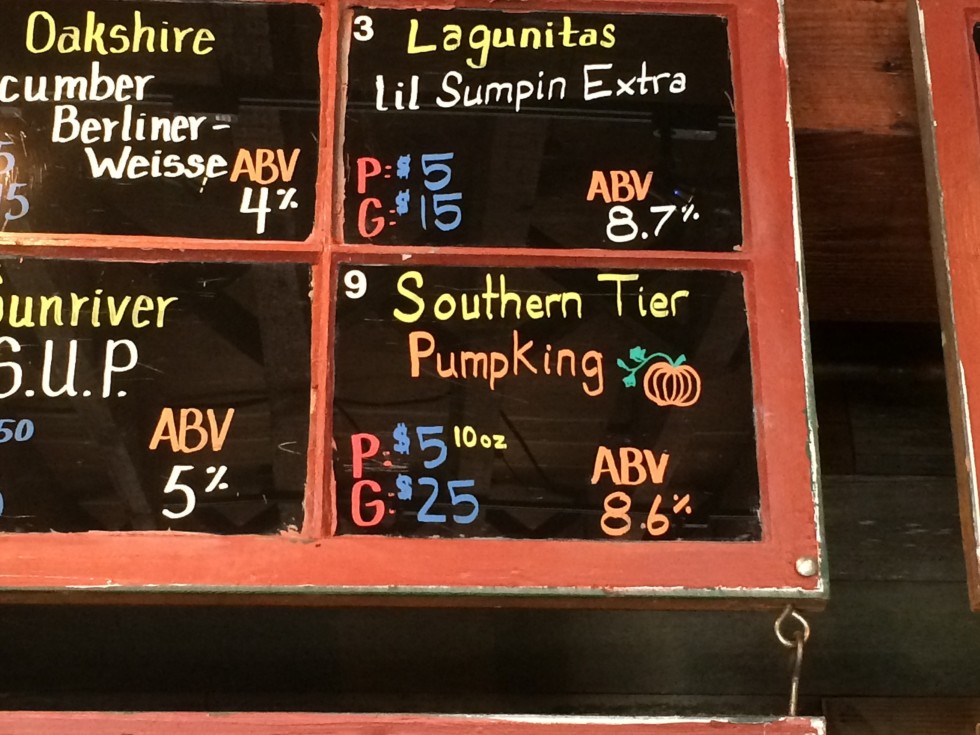 Oakshire
cumber
Berliner-
Weisse
ABV
4%
5
15
3
Lagunitas
lil Sumpin Extra
P: $5
G: $15
ABV
8.7%
Sunriver
S.U.P.
50
ABV
5%
9
Southern Tier
PumpKing
P: $5 10oz
G: $25
ABV
8.6%